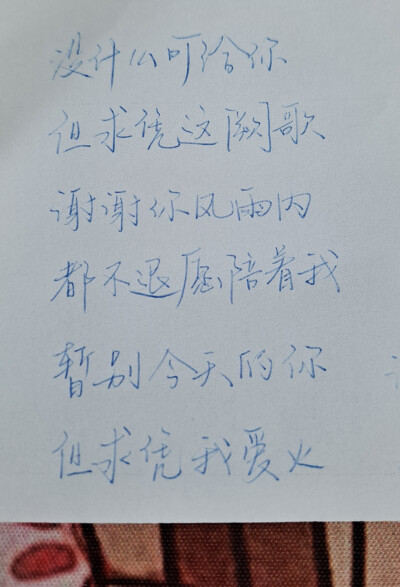 没什么可给你
但求凭这阙歌
谢谢你风雨内
都不退愿陪着我
暂别今天的你
但求凭我爱火